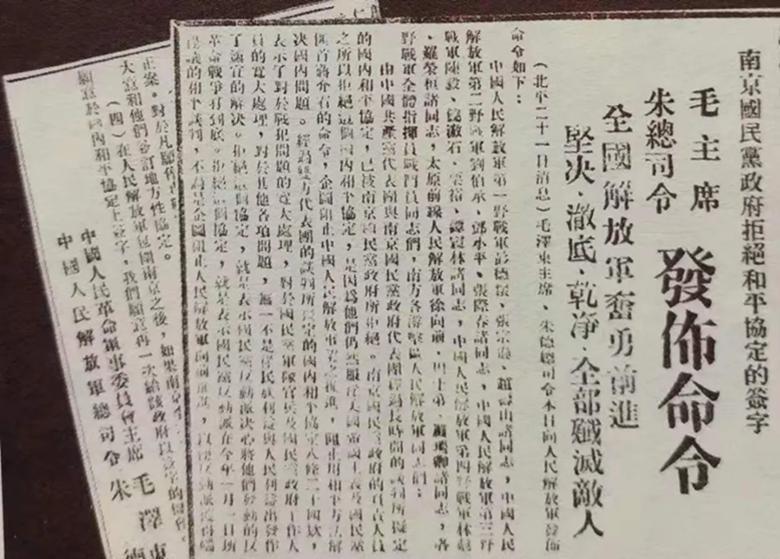 南京國民黨政府拒絕和平協定的簽字
毛主席
朱總司令
發佈命令
全國解放軍奮勇前進
堅决·澈底·乾淨·全部殲滅敵人
（北平二十一日消息）毛澤東主席、朱德總司令本日向人民解放軍發佈
命令如下：
中國人民解放軍第一野戰軍彭德懷、張宗遜、趙壽山諸同志，中國人民
解放軍第二野戰軍劉伯承、鄧小平、張際春諸同志，中國人民解放軍第三野
戰軍陳毅、饒漱石、粟裕、譚震林諸同志，中國人民解放軍第四野戰軍林彪
、羅榮桓諸同志，太原前線人民解放軍徐向前、周士第、羅瑞卿諸同志，各
野戰軍全體指揮員戰鬥員同志們，南方各游擊區人民解放軍同志們：
由中國共產黨代表團與南京國民黨政府代表團經過長時間的談判所擬定
的國內和平協定，已被南京國民黨政府所拒絕。南京國民黨政府的負責人員
之所以拒絕這個國內和平協定，是因爲他們仍然服從美國帝國主義及國民黨
匪首蔣介石的命令，企圖阻止中國人民解放事業的推進，阻止用和平方法解
决國內問題。經過雙方代表團的談判所擬定的國內和平協定八條二十四欵，
表示了對於戰犯問題的寬大處理，對於國民黨軍隊官兵及國民黨政府工作人
員的寬大處理，對於其他各項問題，無一不是從民族利益與人民利益出發作
了適宜的解决。拒絕這個協定，就是表示國民黨反動派决心將他們發動的反
革命戰爭打到底。拒絕這個協定，就是表示國民黨反動派在今年一月一日所
提議的和平談判，不過是企圖阻止人民解放軍向前推進，
正案。對於凡願
大意和他們簽訂地方性協定。
（四）在人民解放軍包圍南京之後，如果南京
願意於國內和平協定上簽字，我們願意再一次給該政府以簽字的機會。
中國人民革命軍事委員會主席 毛澤東
中國人民解放軍總司令 朱德